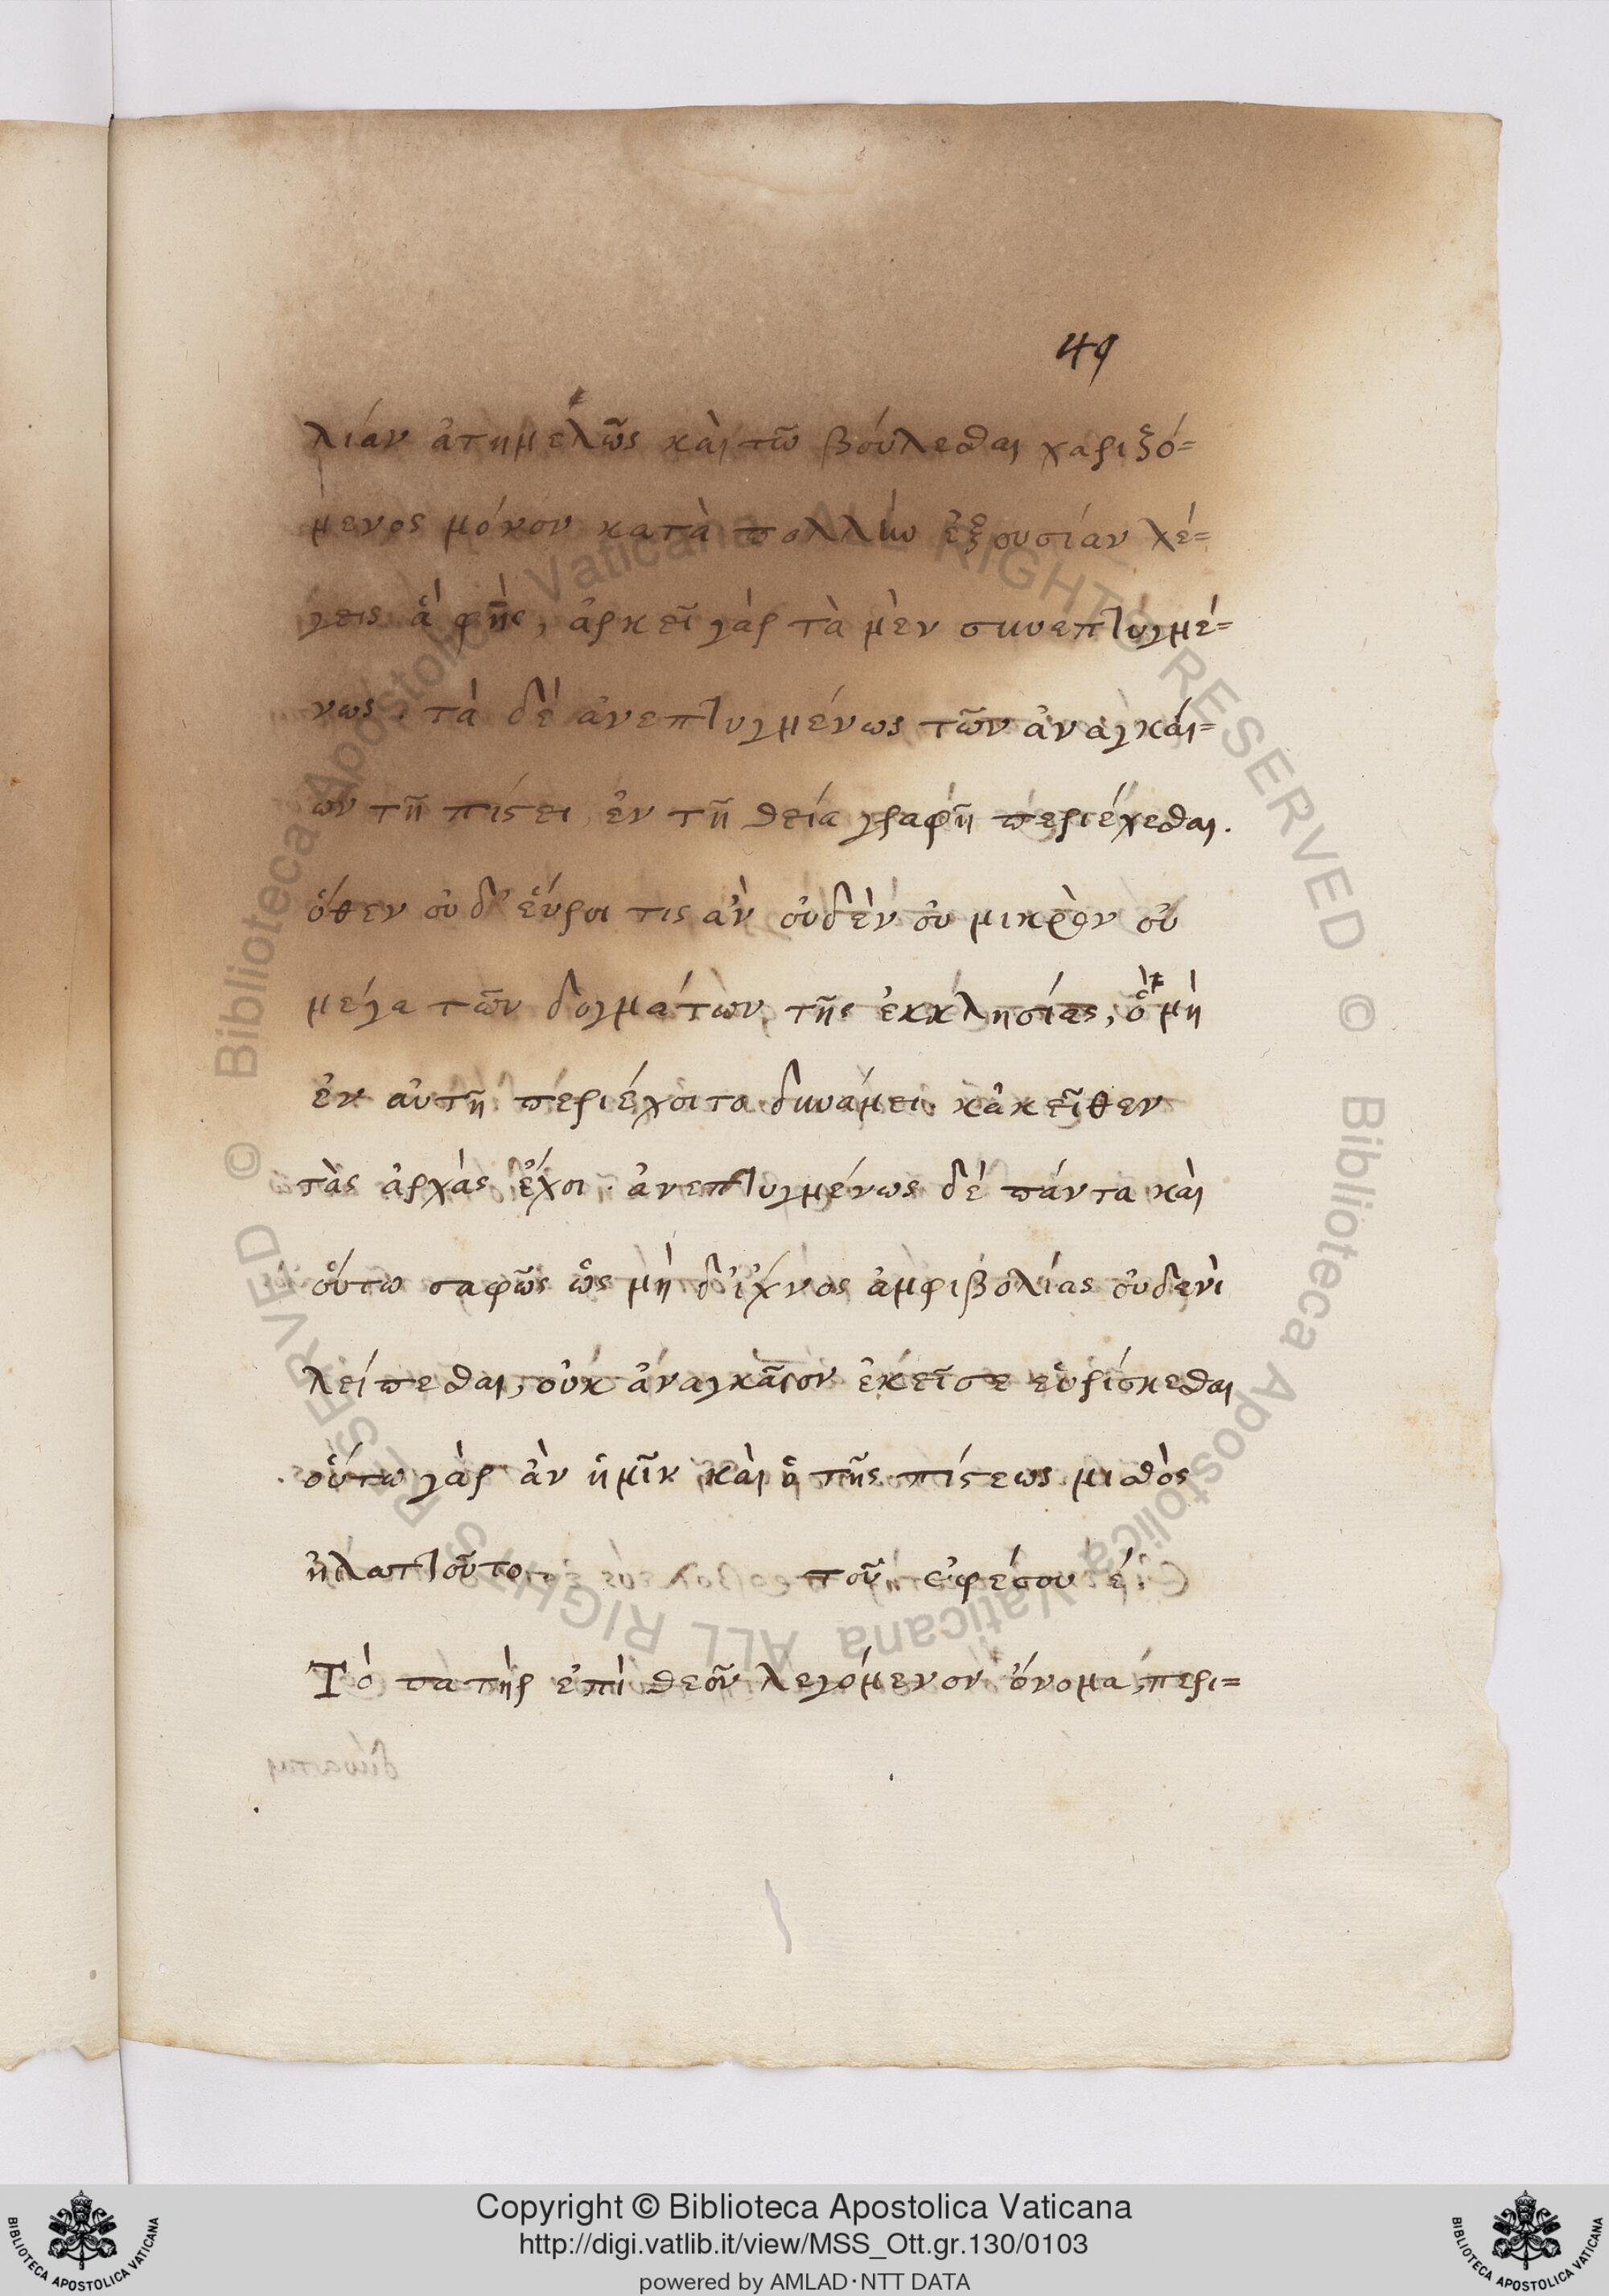 49
λίαν ἀτημελῶς καὶ τῶ βούλεσθαι χαριζό=
μενος μόνον κατὰ πολλὴν ἐξουσίαν λέ=
γεις ἅ φῂς, ἀρκεῖ γὰρ τὰ μὲν συνεπτυγμέ=
νως. τὰ δὲ ἀνεπτυγμένως τῶν ἀναγκαί=
ων τῆ πίστει ἐν τῆ θεία γραφῆ περιέχεσθαι.
ὅθεν οὐδ' εὕροι τις ἂν οὐδὲν οὐ μικρὸν οὐ
μέγα τῶν δογμάτων τῆς ἐκκλησίας, ὃ μὴ
ἐν αὐτῆ περιέχοιτο δυνάμει κἀκεῖθεν
τὰς ἀρχάς ἔχοι. ἀνεπτυγμένως δὲ πάντα καὶ
οὕτω σαφῶς ὡς μὴ δ' ἴχνος ἀμφιβολίας οὐδενὶ
λείπεσθαι, οὐκ ἀναγκαῖον ἐκεῖσε εὑρίσκεσθαι
οὕτω γὰρ ἂν ἡμῖν καὶ ὁ τῆς πίστεως μισθὸς
ἠλαττοῦτο. τοῦ ἐφέσου έ.
Τὸ πατὴρ ἐπὶ θεοῦ λεγόμενον ὄνομα, περι=
Copyright © Biblioteca Apostolica Vaticana
http://digi.vatlib.it/view/MSS_Ott.gr.130/0103
powered by AMLAD·NTT DATA
BIBLIOTECA APOSTOLICA VATICANA
BIBLIOTECA APOSTOLICA VATICANA
© Biblioteca Apostolica Vaticana ALL RIGHTS RESERVED © Biblioteca Apostolica Vaticana ALL RIGHTS RESERVED